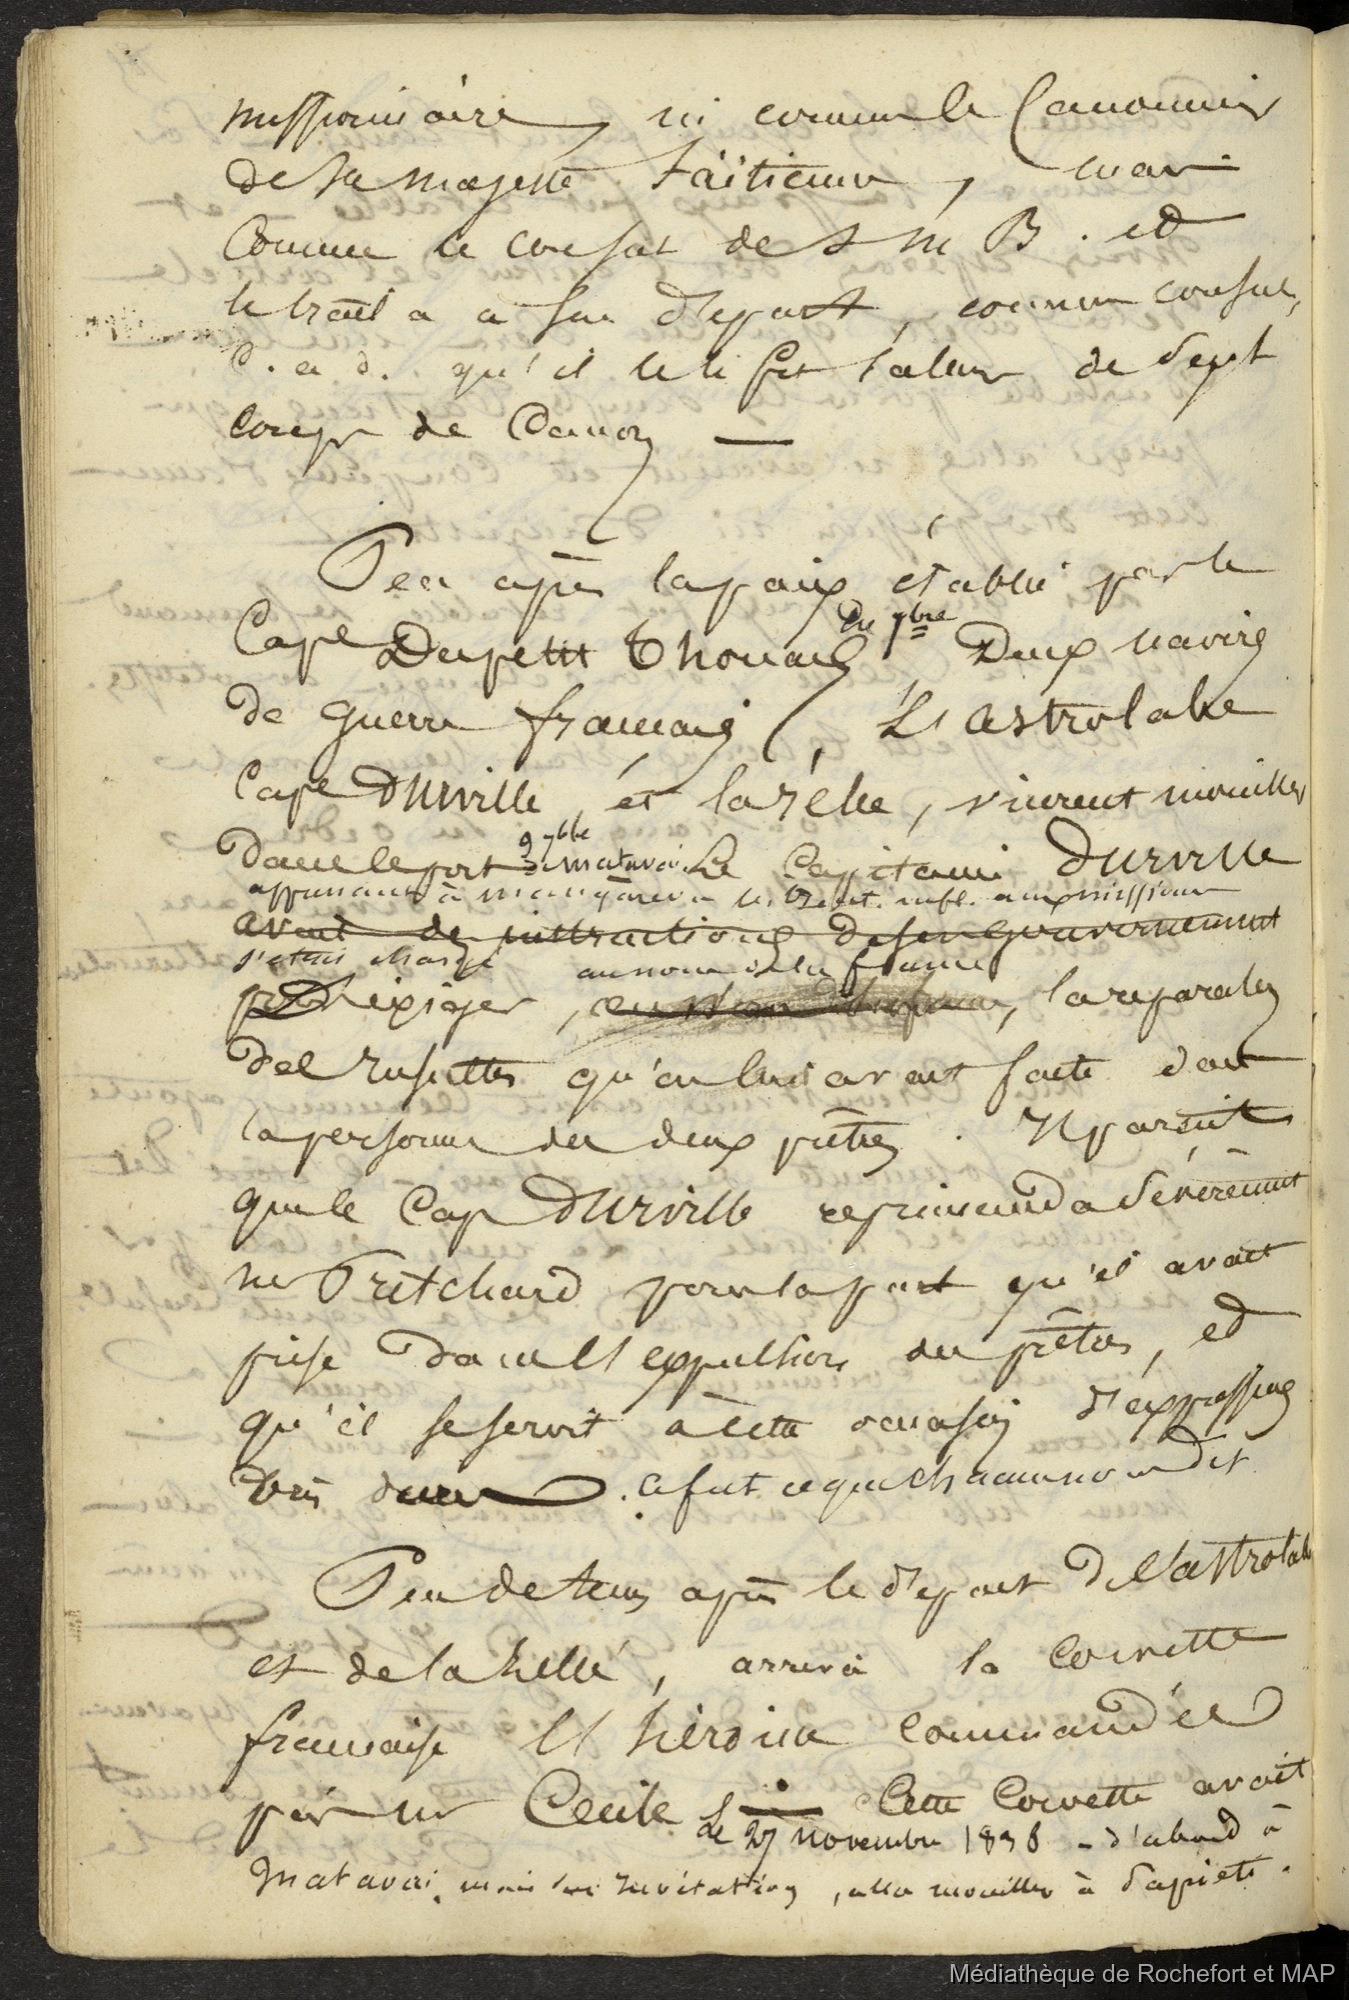 missionnaire, ni comme le Canonnier
de sa majesté taïtienne, mais
Comme le consul de S M B. et
le traita a son départ, comme consul,
C. a d. qu'il le fit saluer de Sept
Coups de Canon —
Peu après la paix établie par le
Cap^e Dupetit Thouars, Deux navires
du 7bre
de guerre français, L'astrolabe
Cap^e Durville et la zélée, vinrent mouiller
9 7bre
dans le port de matavai. Le Capitaine Durville
apprenant à mangareva les trait. infl. aux missionn
avait des instructions de son gouvernement
s'était chargé au nom de la france
pour exiger, la reparation
des insultes qu'on lui avait faite dans
la personne des deux prêtres. Il parait
que le Cap Durville reprimanda Sévèrement
mr Pritchard pour la part qu'il avait
prise dans l'expulsion des prêtres, et
qu'il se servit à cette occasion d'expressions
très dures. Ce fut ce que chacun nous en dit
Peu de tems après le départ de l'astrolabe
et de la zélée, arriva la Corvette
française l'héroine commandée
par mr Cecile Cette Corvette avait
le 27 novembre 1838 - d'abord à
Matavai, mais sur invitation, alla mouiller à Papiete.
Médiathèque de Rochefort et MAP